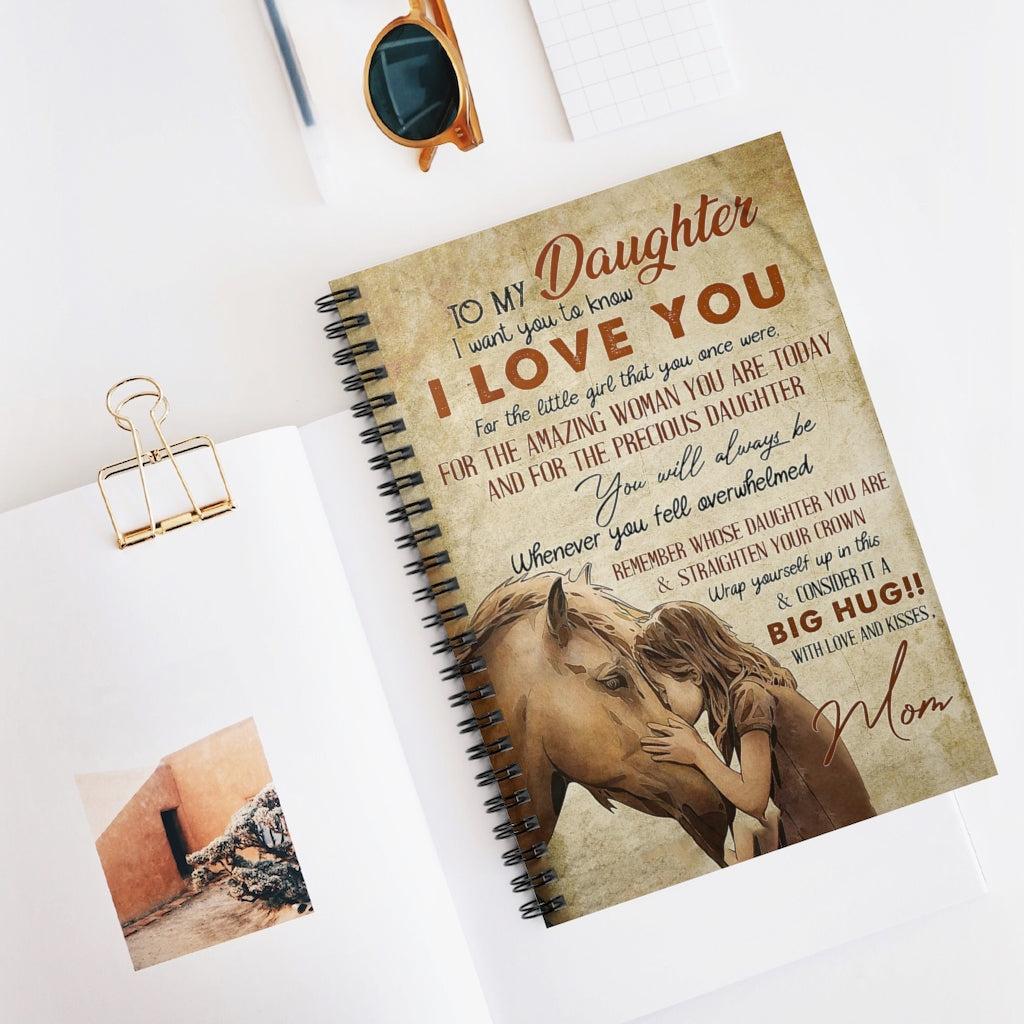 TO MY Daughter
I want you to know
I LOVE YOU
For the little girl that you once were,
FOR THE AMAZING WOMAN YOU ARE TODAY
AND FOR THE PRECIOUS DAUGHTER
You will always be
Whenever you fell overwhelmed
REMEMBER WHOSE DAUGHTER YOU ARE
& STRAIGHTEN YOUR CROWN
Wrap yourself up in this
& CONSIDER IT A
BIG HUG!!
WITH LOVE AND KISSES,
Mom